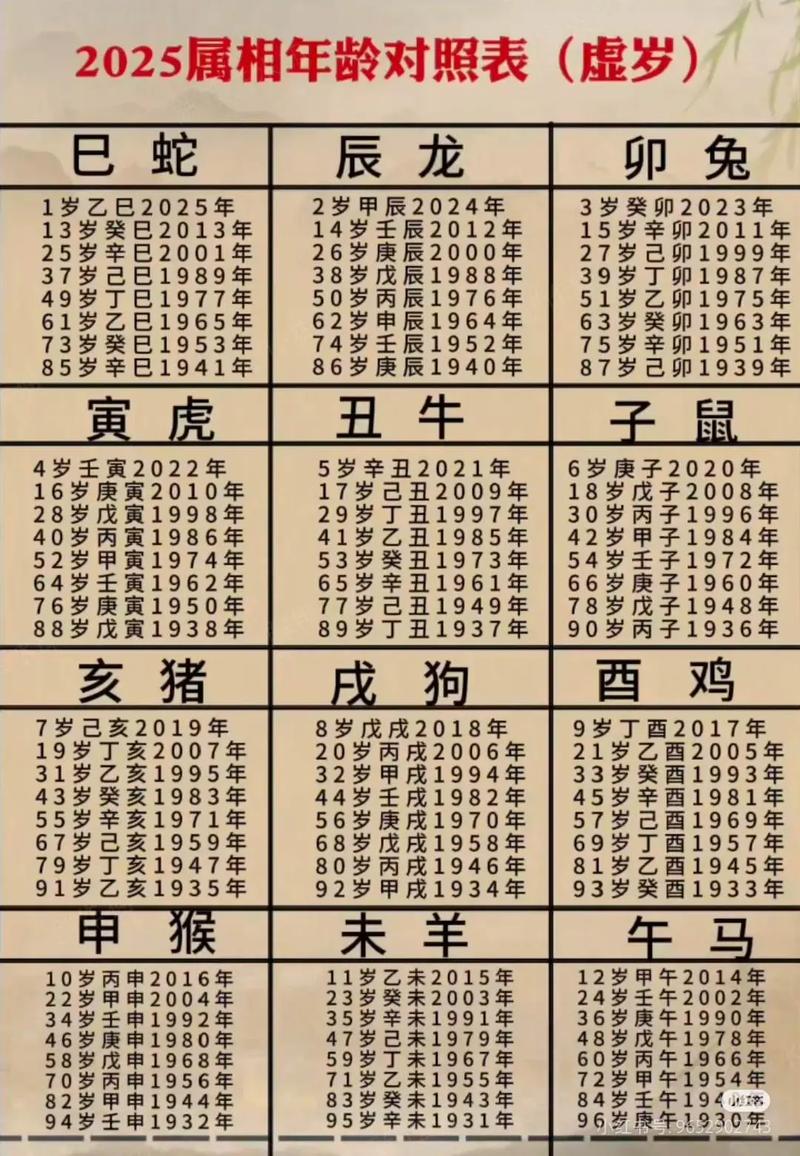 2025属相年龄对照表（虚岁）
巳 蛇
1岁乙巳2025年
13岁癸巳2013年
25岁辛巳2001年
37岁己巳1989年
49岁丁巳1977年
61岁乙巳1965年
73岁癸巳1953年
85岁辛巳1941年
辰 龙
2岁甲辰2024年
14岁壬辰2012年
26岁庚辰2000年
38岁戊辰1988年
50岁丙辰1976年
62岁申辰1964年
74岁壬辰1952年
86岁庚辰1940年
卯 兔
3岁癸卯2023年
15岁辛卯2011年
27岁己卯1999年
39岁丁卯1987年
51岁乙卯1975年
63岁癸卯1963年
75岁辛卯1951年
87岁己卯1939年
寅 虎
4岁壬寅2022年
16岁庚寅2010年
28岁戊寅1998年
40岁丙寅1986年
52岁甲寅1974年
64岁壬寅1962年
76岁庚寅1950年
88岁戊寅1938年
丑 牛
5岁辛丑2021年
17岁己丑2009年
29岁丁丑1997年
41岁乙丑1985年
53岁癸丑1973年
65岁辛丑1961年
77岁己丑1949年
89岁丁丑1937年
子 鼠
6岁庚子2020年
18岁戊子2008年
30岁丙子1996年
42岁甲子1984年
54岁壬子1972年
66岁庚子1960年
78岁戊子1948年
90岁丙子1936年
亥 猪
7岁己亥2019年
19岁丁亥2007年
31岁乙亥1995年
43岁癸亥1983年
55岁辛亥1971年
67岁己亥1959年
79岁丁亥1947年
91岁乙亥1935年
戌 狗
8岁戊戌2018年
20岁丙戌2006年
32岁甲戌1994年
44岁壬戌1982年
56岁庚戌1970年
68岁戊戌1958年
80岁丙戌1946年
92岁甲戌1934年
酉 鸡
9岁丁酉2017年
21岁乙酉2005年
33岁癸酉1993年
45岁辛酉1981年
57岁己酉1969年
69岁丁酉1957年
81岁乙酉1945年
93岁癸酉1933年
申 猴
10岁丙申2016年
22岁甲申2004年
34岁壬申1992年
46岁庚申1980年
58岁戊申1968年
70岁丙申1956年
82岁甲申1944年
94岁壬申1932年
未 羊
11岁乙未2015年
23岁癸未2003年
35岁辛未1991年
47岁己未1979年
59岁丁未1967年
71岁乙未1955年
83岁癸未1943年
95岁辛未1931年
午 马
12岁甲午2014年
24岁壬午2002年
36岁庚午1990年
48岁戊午1978年
60岁丙午1966年
72岁甲午1954年
84岁壬午194
96岁庚午1930年
小红书
小红书号: 9652902743